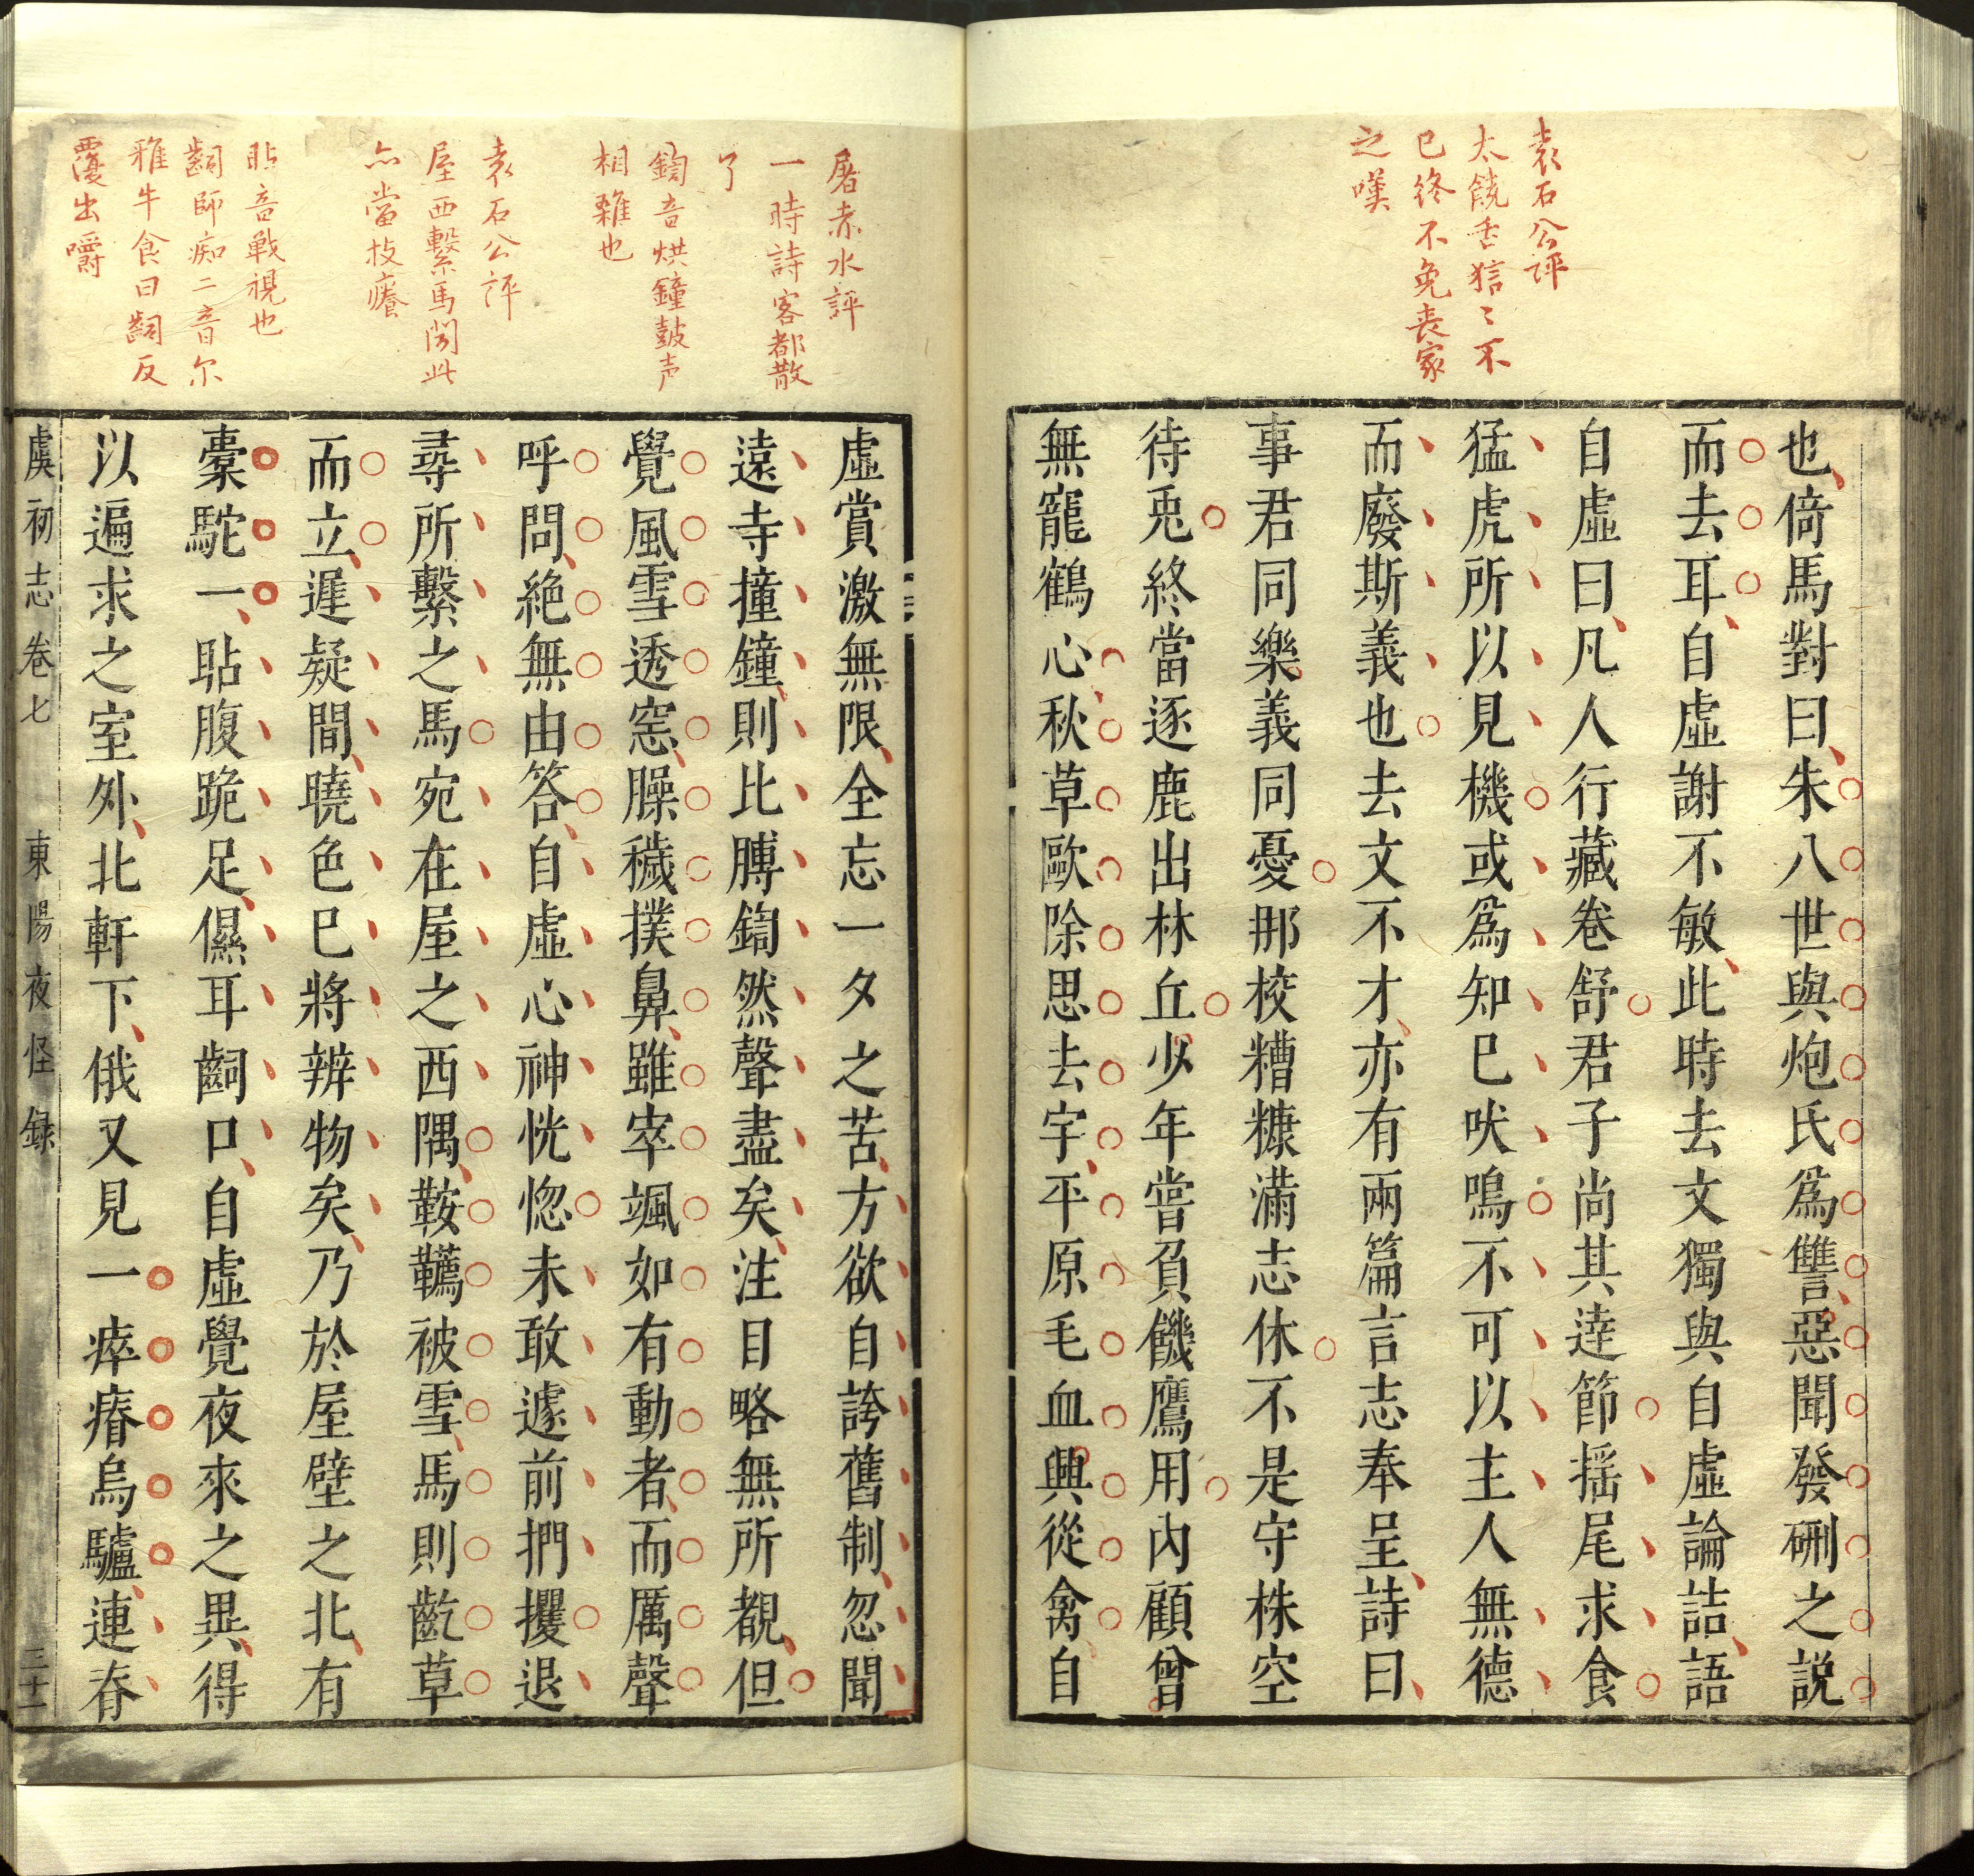 袁石公評
太饒舌狺〻不
已終不免喪家
之嘆
也倚馬對曰朱八世與炮氏爲讐惡聞發硎之説
而去耳自虛謝不敏此時去文獨與自虛論詰語
自虛曰凡人行藏卷舒君子尚其逹節揺尾求食
猛虎所以見機或爲知巳吠鳴不可以主人無德
而廢斯義也去文不才亦有兩篇言志奉呈詩曰
事君同樂義同憂那校糟糠滿志休不是守株空
待兎終當逐鹿出林丘少年嘗負饑鷹用內顧曾
無寵鶴心秋草歐除思去宇平原毛血興從禽自
屠赤水評
一時詩客都散
了
鍧音烘鐘鼓声
相雜也
袁石公評
屋西繫馬閱此
亦當技癢
貼音戰視也
齝師痴二音尔
雅牛食曰齝反
覆出嚼
虛賞激無限全忘一夕之苦方欲自誇舊制忽聞
遠寺撞鐘則比膊鍧然聲盡矣注目略無所覩但
覺風雪透窓臊穢撲鼻雖窣颯如有動者而厲聲
呼問絶無由答自虛心神恍惚未敢遽前捫攖退
尋所繫之馬宛在屋之西隅鞍韉被雪馬則齕草
而立遲疑間曉色巳將辨物矣乃於屋壁之北有
橐駝一貼腹跪足儑耳齝口自虛覺夜來之異得
以遍求之室外北軒下俄又見一瘁瘠烏驢連脊
虞初志卷七 東陽夜怪録 三十一